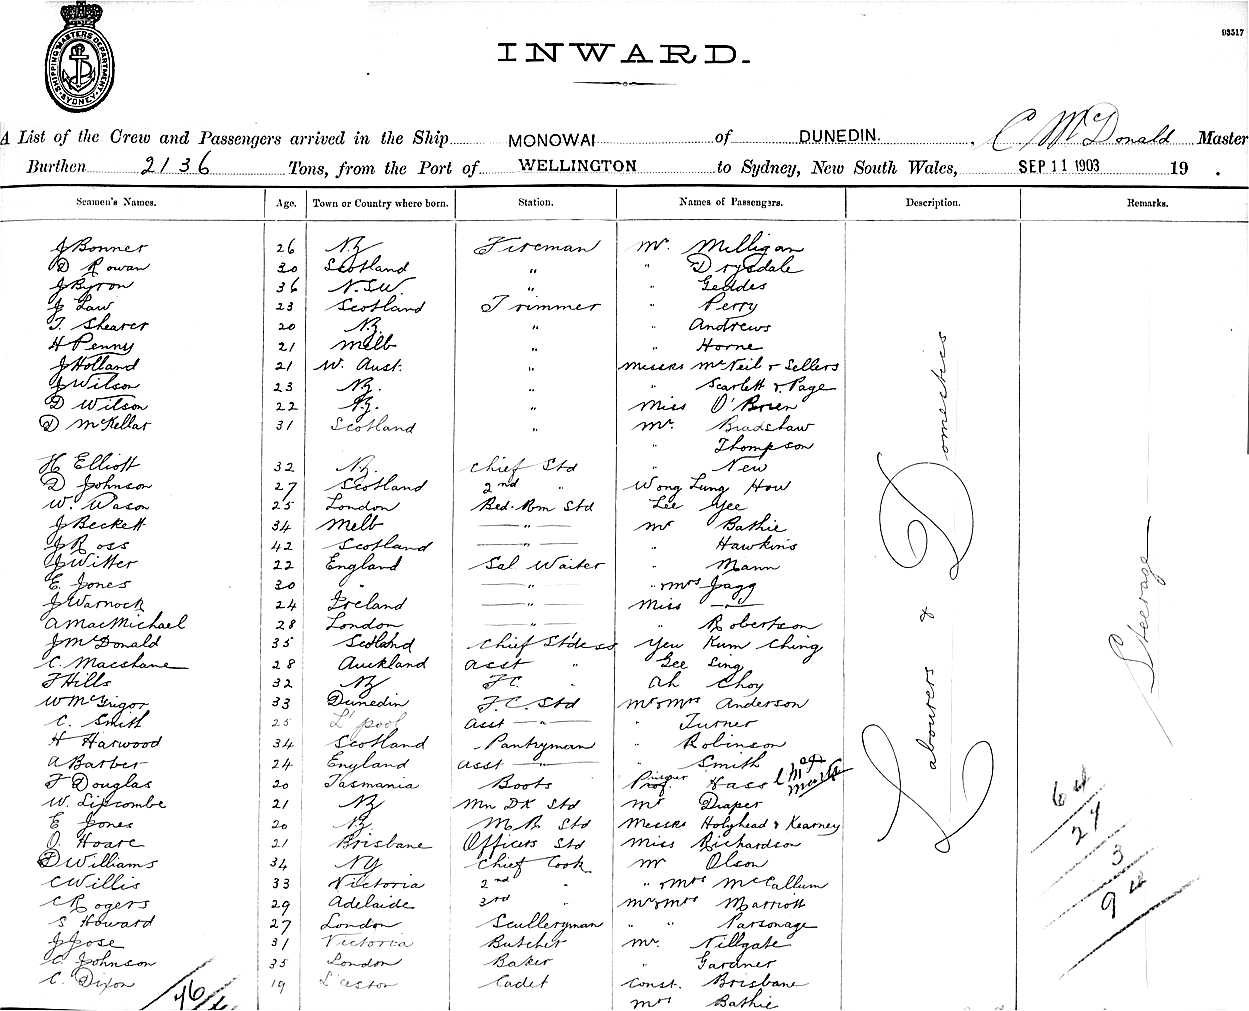 03517
SHIPPING MASTERS DEPARTMENT. SYDNEY.
INWARD.
A List of the Crew and Passengers arrived in the Ship MONOWAI of DUNEDIN. C. McDonald Master
Burthen 2136 Tons, from the Port of WELLINGTON to Sydney, New South Wales, SEP 11 1903 19 .
Seamen's Names. Age. Town or Country where born. Station. Names of Passengers. Description. Remarks.
J Bonner 26 N.Z Fireman Mr. Milligan
D Rowan 30 Scotland " " Drysdale
J Byron 36 N.S.W. " " Geddes
J Law 23 Scotland Trimmer " Perry
T. Shearer 20 N.Z. " " Andrews
H Penny 21 Melb " " Horne
J Holland 21 W. Aust. " Messrs McNeil & Sellers
J Wilson 23 N.Z. " " Scarlett & Page
D Wilson 22 N.Z. " Miss O'Brien
D McKellar 31 Scotland " Mr. Bradshaw
" Thompson
H Elliott 32 N.Z. Chief Std " New
D Johnson 27 Scotland 2nd " Wong Lung How
W. Wason 25 London Bed. Rm Std Lee Yee
J Beckett 34 Melb " Mr Bathie
J Ross 42 Scotland " " Hawkins
J Witter 22 England Sal Waiter " Mann
E. Jones 20 " " " & Mrs Jagg
J Warnock 24 Ireland " Miss "
A MacMichael 28 London " " Robertson
J McDonald 35 Scotland Chief St'dess Yeu Kum Ching
C. Macshane 28 Auckland Asst " Gee Sing
F Hills 32 N.Z F.C. " Ah Choy
W McGrigor 33 Dunedin F.C. Std Mr & Mrs Anderson
C. Smith 25 L'pool Asst " " Turner
H Harwood 34 Scotland Pantryman " Robinson
A Barber 24 England Asst " " Smith
F Douglas 20 Tasmania Boots Prof. Hass
W. Lipcombe 21 N.Z Mn DK Std Mr Draper
E Jones 20 N.Z. M.R Std Messrs Holyhead & Kearney
O. Hoare 21 Brisbane Officers Std Miss Richardson
D Williams 34 NY Chief Cook Mr Olson
C Willis 33 Victoria 2nd " " & Mrs McCallum
C Rogers 29 Adelaide 3rd " Mr & Mrs Marriott
S Howard 27 London Sculleryman " " Parsonage
J Jose 31 Victoria Butcher Mr. Tillgate
C. Johnson 35 London Baker " Gardner
C. Dixon 19 L'ceston Cadet Const. Brisbane
Mrs Bathie
Labourers & Domestics
Steerage
64
27
3
94
76